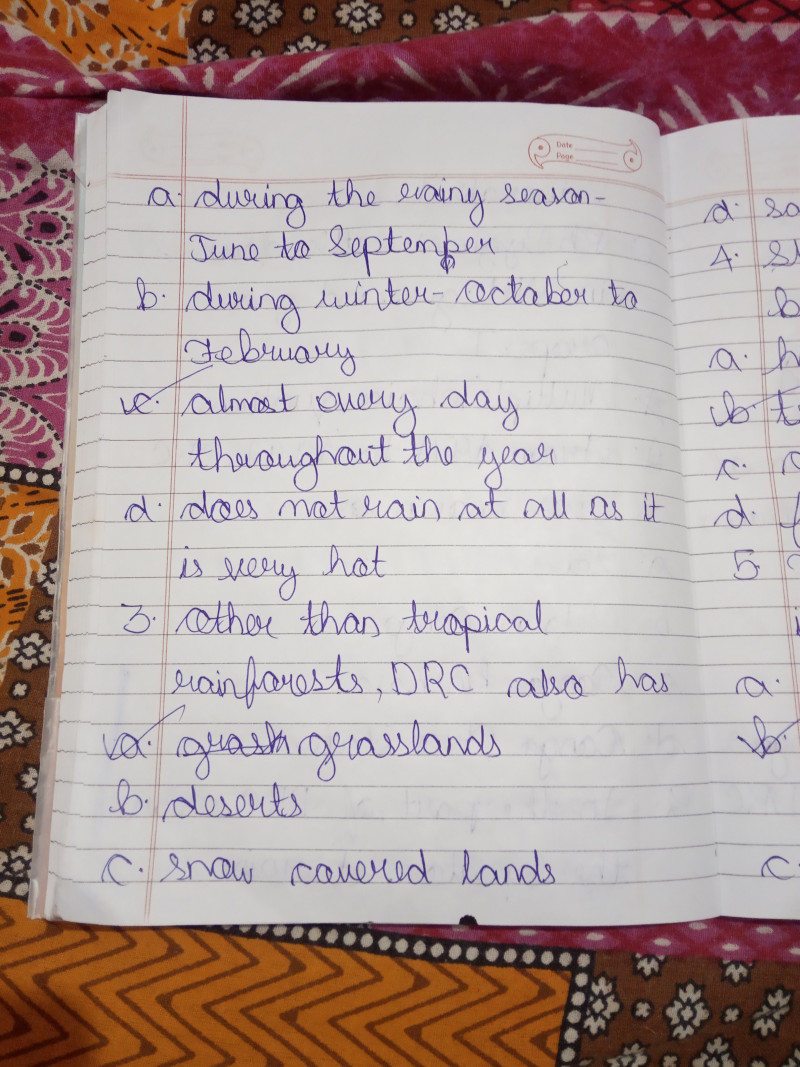 Date
Page
a. during the rainy season-
June to September
b. during winter- october to
February
c. almost every day
throughout the year
d. does not rain at all as it
is very hot
3. other than tropical
rainforests, DRC also has
a. grasslands
b. deserts
c. snow covered lands
d. so
4.
b
a. h
b. t
c.
d.
5.
a.
b.
c.